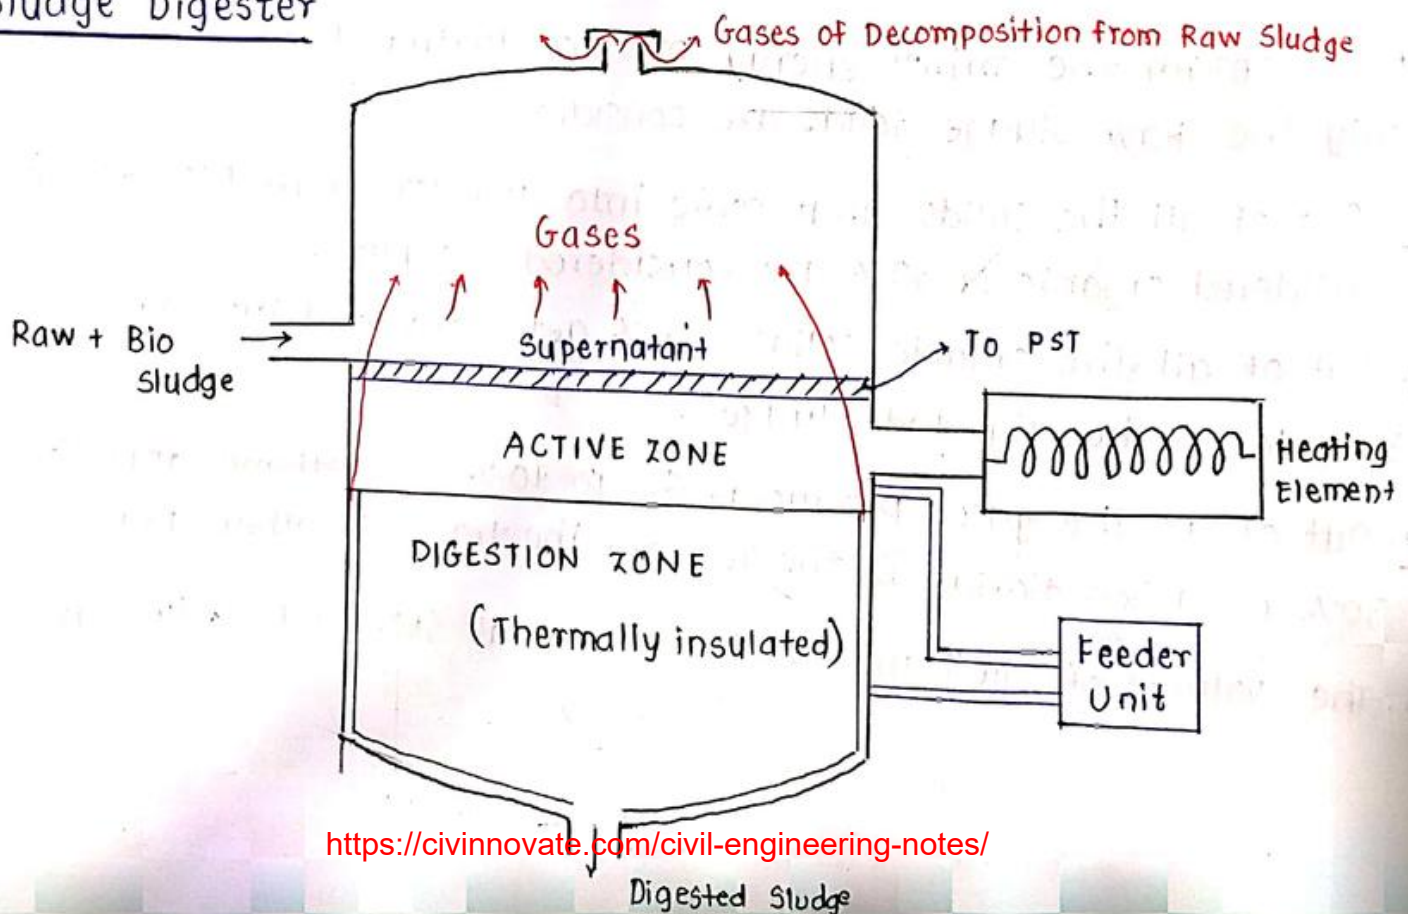 Sludge Digester
Gases of Decomposition from Raw Sludge
Gases
Raw + Bio
Sludge
Supernatant
To PST
ACTIVE ZONE
Heating
Element
DIGESTION ZONE
(Thermally insulated)
Feeder
Unit
https://civinnovate.com/civil-engineering-notes/
Digested Sludge